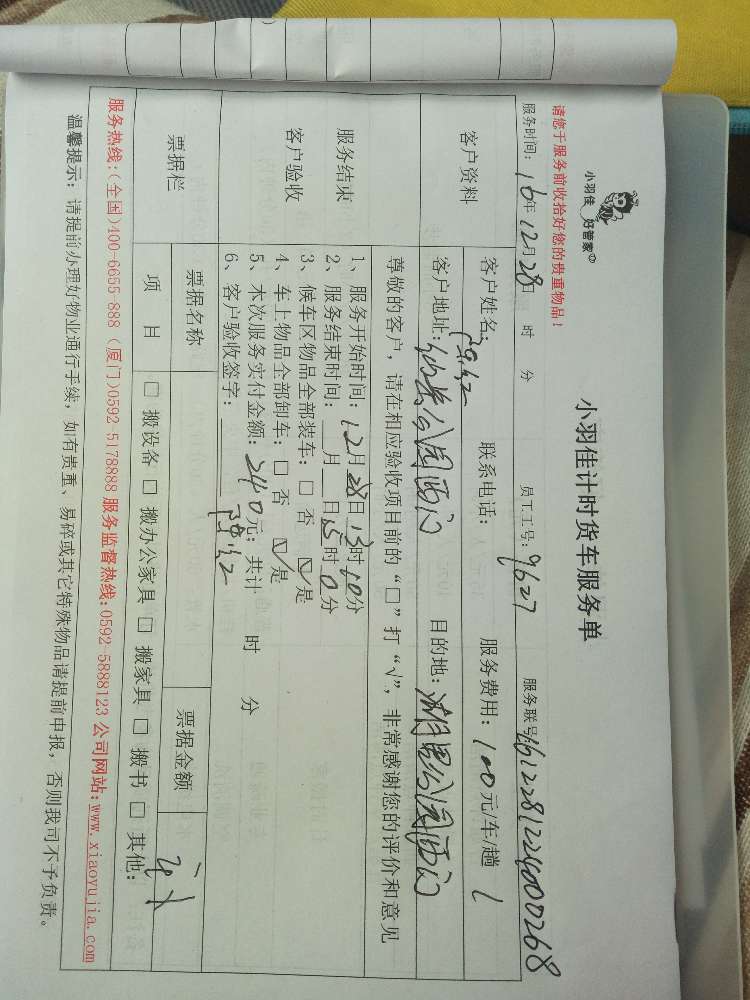 小羽佳 好管家
小羽佳计时货车服务单
请您于服务前收拾好您的贵重物品！
服务时间：16年12月28日 时 分 员工工号：9627 服务联号：1612281224000268
客户资料
客户姓名： 联系电话： 服务费用：100元/车/趟
客户地址： 公园西门 目的地： 公园西门
尊敬的客户，请在相应验收项目前的“□”打“√”，非常感谢您的评价和意见
服务结束
客户验收
1、服务开始时间：12月28日13时10分
2、服务结束时间： 月 日15时0分
3、候车区物品全部装车：□ 否 ☑ 是
4、车上物品全部卸车：□ 否 ☑ 是
5、本次服务实付金额：240元；共计 时 分
6、客户验收签字：
票据栏
票据名称 票据金额
项 目 □ 搬设备 □ 搬办公家具 □ 搬家具 □ 搬书 □ 其他：
服务热线:(全国)400-6655-888 (厦门)0592-5178888 服务监督热线:0592-5888123 公司网站:www.xiaoyujia.com
温馨提示：请提前办理好物业通行手续，如有贵重、易碎或其它特殊物品请提前申报，否则我司不予负责。